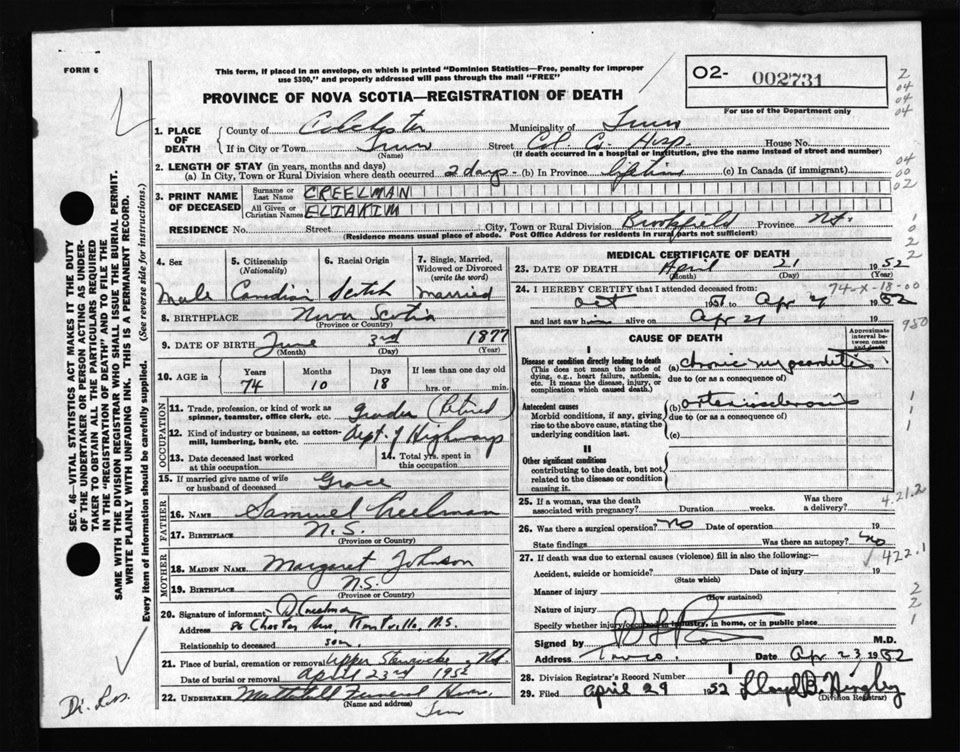 FORM 6
This form, if placed in an envelope, on which is printed "Dominion Statistics—Free, penalty for improper
use $300," and properly addressed will pass through the mail "FREE"
PROVINCE OF NOVA SCOTIA—REGISTRATION OF DEATH
O2- 002731
For use of the Department only
2
04
04
04
1. PLACE OF DEATH
County of Colchester Municipality of Truro
If in City or Town Truro (Name) Street Col. Co. Hosp. House No.
(If death occurred in a hospital or institution, give the name instead of street and number)
2. LENGTH OF STAY (in years, months and days)
(a) In City, Town or Rural Division where death occurred 2 days - (b) In Province lifetime (c) In Canada (if immigrant)
04
00
02
3. PRINT NAME OF DECEASED
Surname or Last Name CREELMAN
All Given or Christian Names ELIAKIM
RESIDENCE No. Street City, Town or Rural Division Brookfield Province N.S.
(Residence means usual place of abode. Post Office Address for residents in rural parts not sufficient)
4. Sex
Male
5. Citizenship (Nationality)
Canadian
6. Racial Origin
Scotch
7. Single, Married, Widowed or Divorced (write the word)
married
8. BIRTHPLACE Nova Scotia
(Province or Country)
9. DATE OF BIRTH June 3rd 1877
(Month) (Day) (Year)
10. AGE in Years 74 Months 10 Days 18 If less than one day old
hrs. or min.
OCCUPATION
11. Trade, profession or kind of work as spinner, teamster, office clerk, etc. grader (retired
12. Kind of industry or business, as cotton-mill, lumbering, bank, etc. Dept. of Highways
13. Date deceased last worked at this occupation
14. Total yrs. spent in this occupation
15. If married give name of wife or husband of deceased Grace
FATHER
16. NAME Samuel Creelman
17. BIRTHPLACE N.S.
(Province or Country)
MOTHER
18. MAIDEN NAME Margaret Johnson
19. BIRTHPLACE N.S.
(Province or Country)
20. Signature of informant D. Creelman
Address 86 Chester Ave Kentville, N.S.
Relationship to deceased son.
21. Place of burial, cremation or removal Upper Stewiacke, N.S.
Date of burial or removal April 23rd 1952
22. UNDERTAKER Mattatall Funeral Home,
(Name and address) Truro
MEDICAL CERTIFICATE OF DEATH
23. DATE OF DEATH April 21 1952
(Month) (Day) (Year)
24. I HEREBY CERTIFY that I attended deceased from:
74-X-18-00
Oct 1951 to Apr 1952
and last saw him alive on Apr 21 19
CAUSE OF DEATH
Approximate interval between onset and death
I
Disease or condition directly leading to death
(This does not mean the mode of dying, e.g., heart failure, asthenia, etc. It means the disease, injury, or complication which caused death.)
(a) Chronic myocarditis
due to (or as a consequence of)
Antecedent causes
Morbid conditions, if any, giving rise to the above cause, stating the underlying condition last.
(b) arteriosclerosis
due to (or as a consequence of)
(c)
II
Other significant conditions
contributing to the death, but not related to the disease or condition causing it.
25. If a woman, was the death associated with pregnancy? Duration weeks. Was there a delivery?
4.21.2
26. Was there a surgical operation? No Date of operation 19
State findings Was there an autopsy? No
422.1
27. If death was due to external causes (violence) fill in also the following:—
Accident, suicide or homicide? Date of injury 19
(State which)
Manner of injury
(How sustained)
Nature of injury
Specify whether injury occurred in industry, in home, or in public place
Signed by M.D.
Address Truro. Date Apr 23 1952
28. Division Registrar's Record Number
29. Filed april 29 1952 Lloyd B. Hingley
(Division Registrar)
SEC. 46—VITAL STATISTICS ACT MAKES IT THE DUTY
OF THE UNDERTAKER OR PERSON ACTING AS UNDER-
TAKER TO OBTAIN ALL THE PARTICULARS REQUIRED
IN THE "REGISTRATION OF DEATH" AND TO FILE THE
SAME WITH THE DIVISION REGISTRAR WHO SHALL ISSUE THE BURIAL PERMIT.
WRITE PLAINLY WITH UNFADING INK. THIS IS A PERMANENT RECORD.
Every item of information should be carefully supplied. (See reverse side for instructions.)